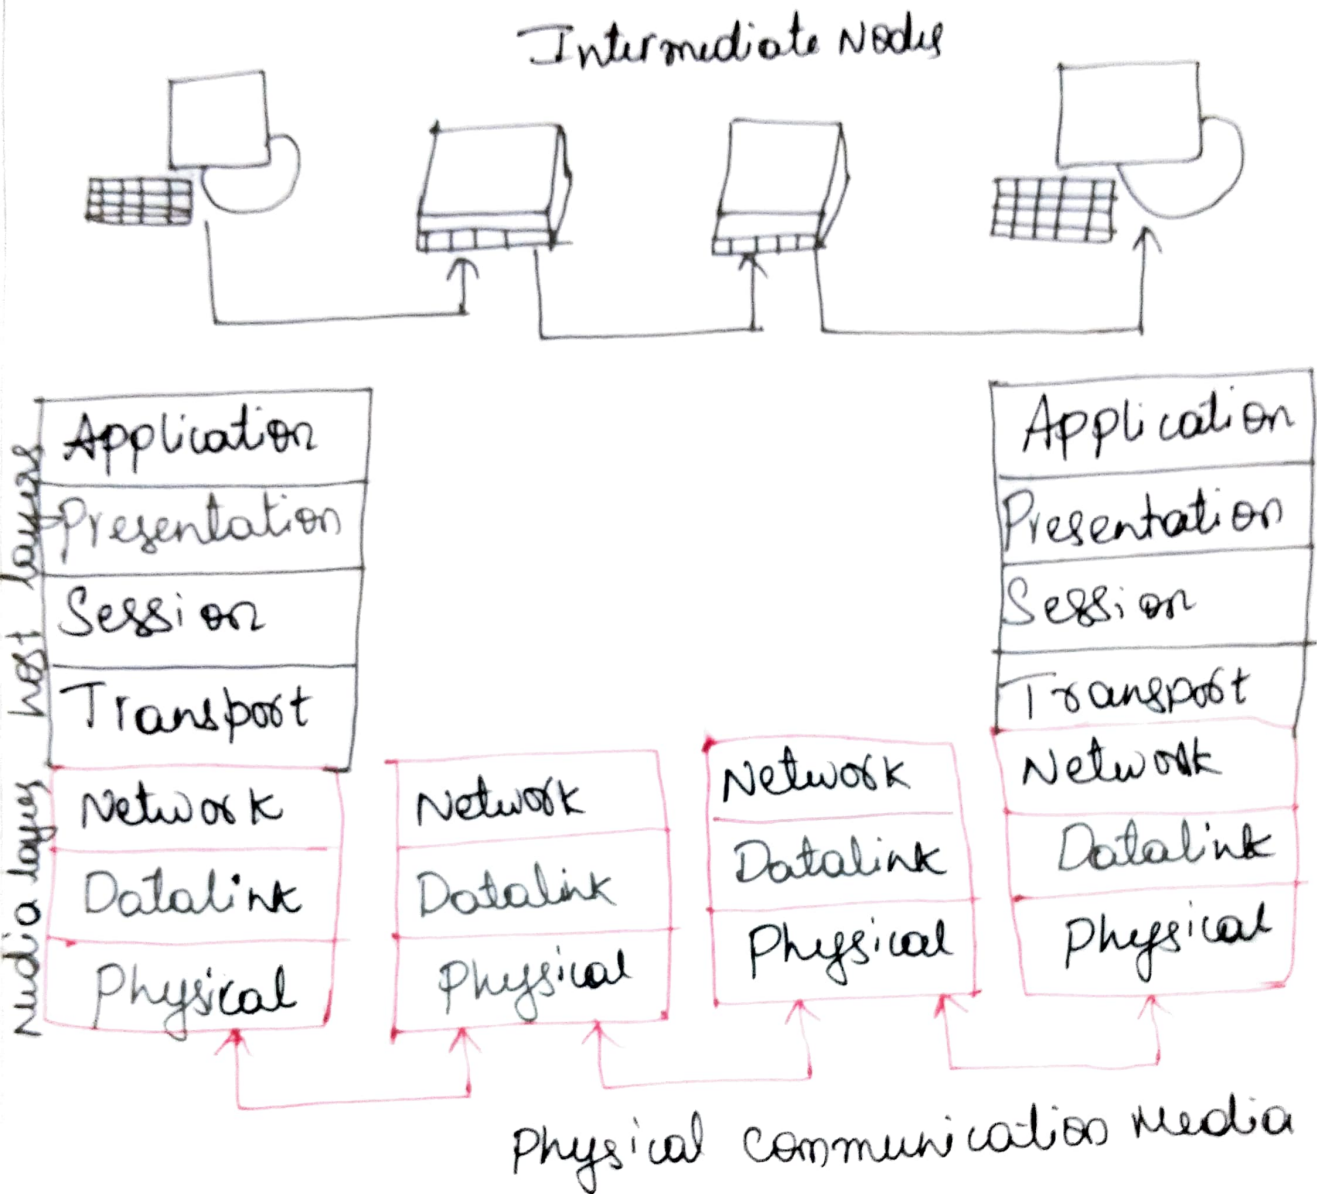 Intermediate Nodes
host layers
Media layers
Application
Presentation
Session
Transport
Network
Datalink
Physical
Network
Datalink
Physical
Network
Datalink
Physical
Application
Presentation
Session
Transport
Network
Datalink
Physical
Physical communication Media